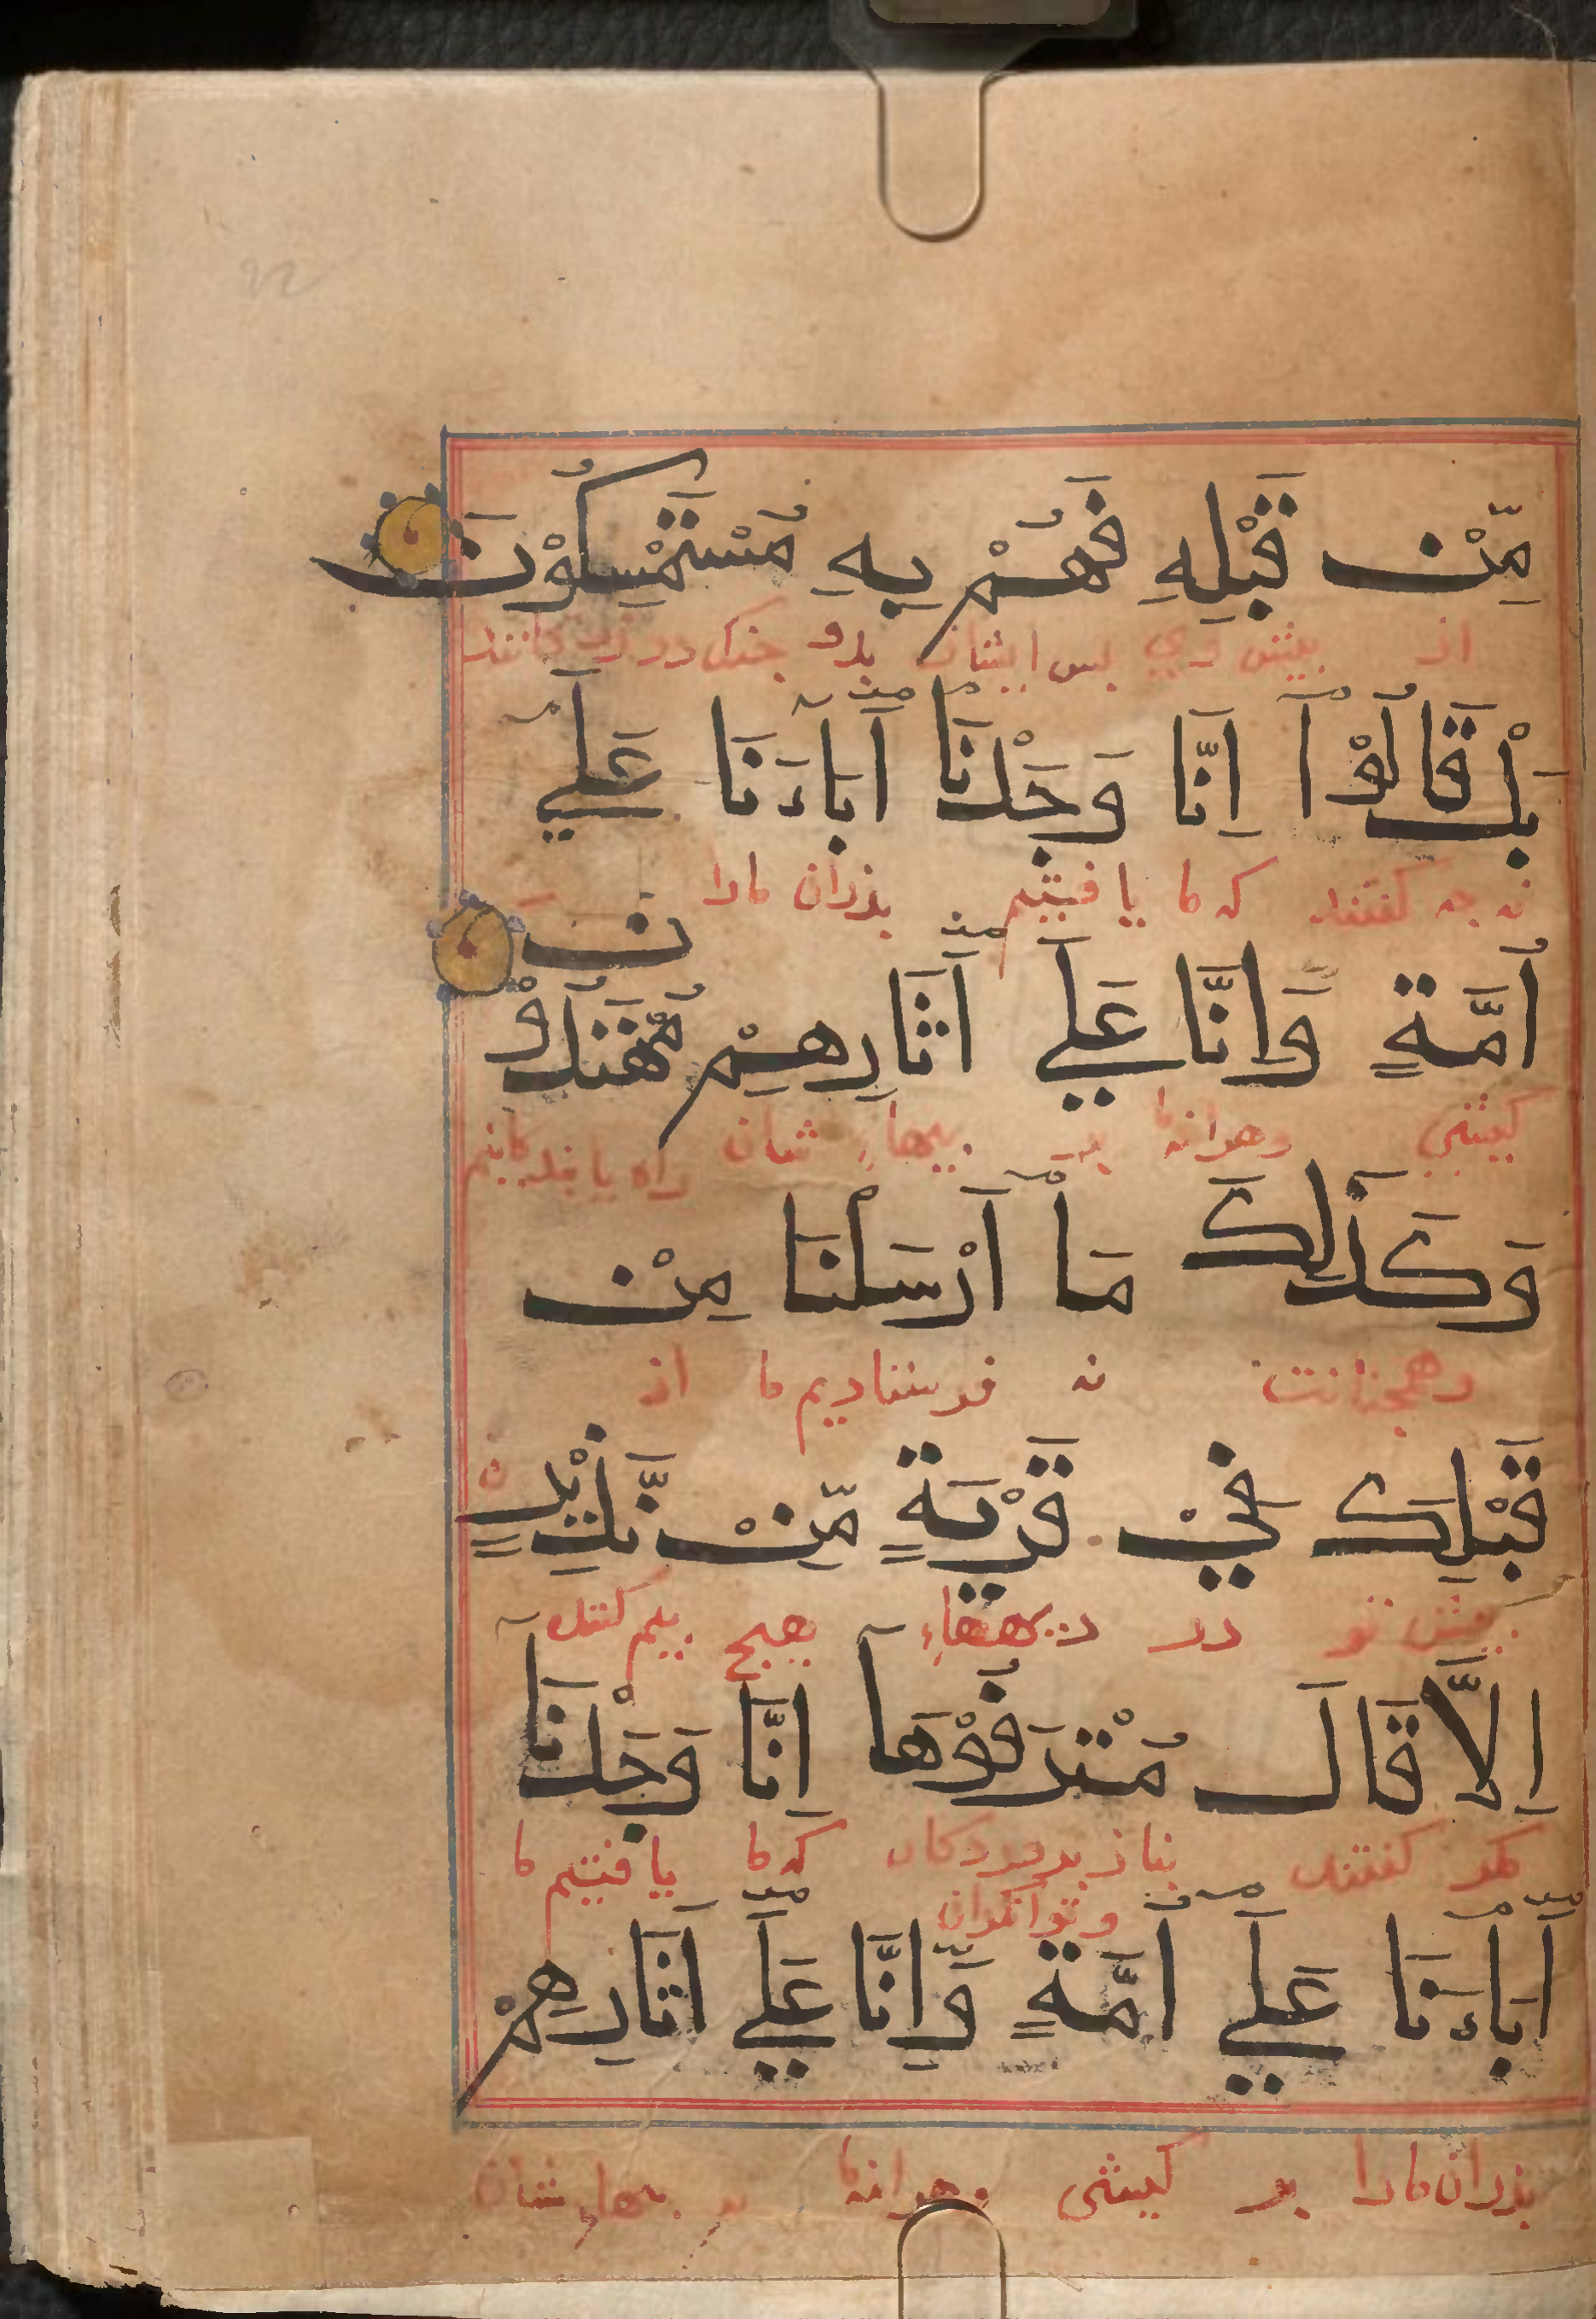 مِّنْ قَبْلِهِ فَهُمْ بِهِ مُسْتَمْسِكُوْنَ
از بیش وی بس ایشان بدو جنک در زد کانند
بَلْ قَالُوْٓا اِنَّا وَجَدْنَآ اٰبَآءَنَا عَلٰٓي
نه جه کفتند که ما یافتیم بذران مارا
اُمَّةٍ وَّاِنَّا عَلٰٓي اٰثَارِهِمْ مُّهْتَدُوْنَ
کیشی وهرانه ما بر بیهاء شان راه یابند کانیم
وَكَذٰلِكَ مَآ اَرْسَلْنَا مِنْ
وهمجنانست نه فرستادیم ما از
قَبْلِكَ فِيْ قَرْيَةٍ مِّنْ نَّذِيْرٍ
بیش تو در دیهها، هیج بیم کننده
اِلَّا قَالَ مُتْرَفُوْهَآ اِنَّا وَجَدْنَآ
مکر کفتند بناز بروردکان که ما یافتیم ما
وتوانکران
اٰبَآءَنَا عَلٰٓي اُمَّةٍ وَّاِنَّا عَلٰٓي اٰثَارِهِمْ
بذران مارا بر کیشی وهرانه ما بر بیهاء شان